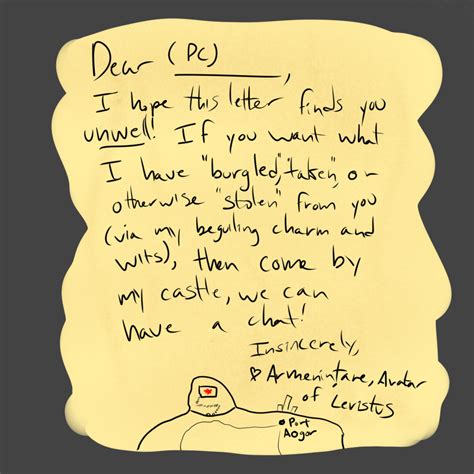 Dear (PC),
I hope this letter finds you
unwell! If you want what
I have "burgled", "taken", or
otherwise "stolen" from you
(via my beguling charm and
wits), then come by
my castle, we can
have a chat!
Insincerely,
Armenintare, Avatar
of Levistus
Port
Aogar